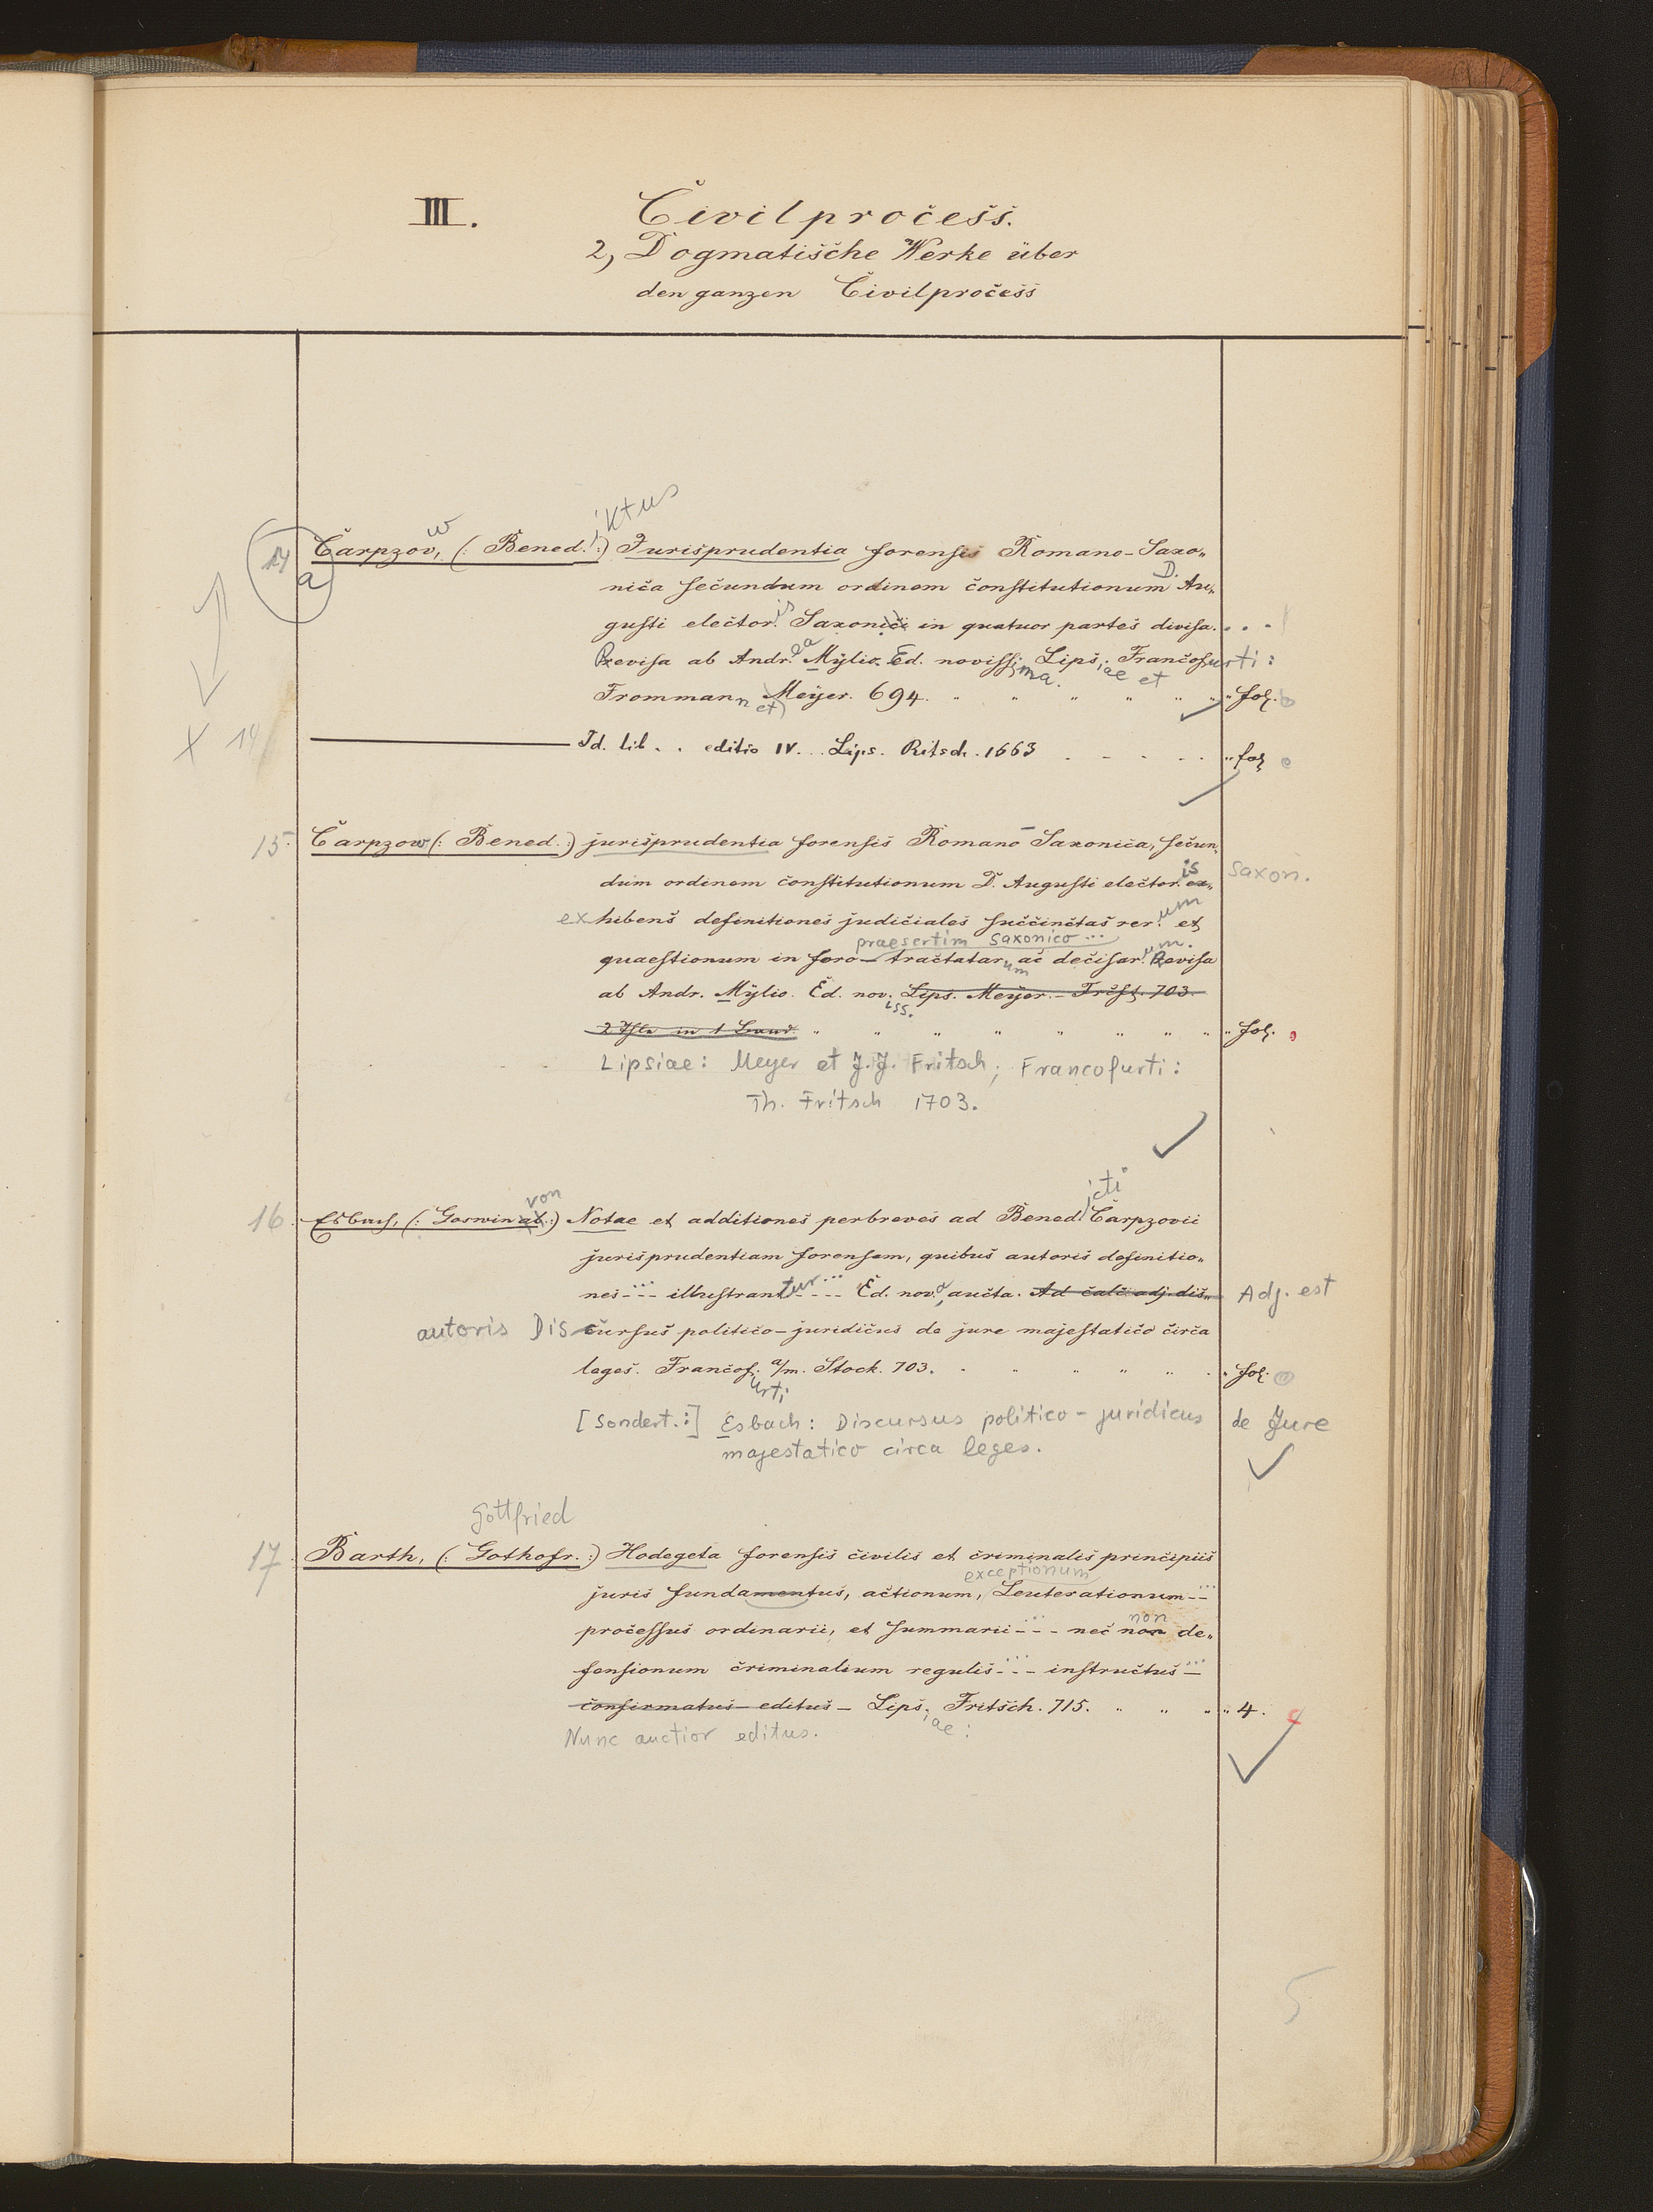 III. Civilprocess.
2, Dogmatische Werke über
den ganzen Civilprocess
w iktus
14 Carpzov, (: Bened. :) Jurisprudentia forensis Romano-Saxo-
a
nica secundum ordinem constitutionum D. Au-
gusti elector.is Saxonici in quatuor partes divisa. . . .
Revisa ab Andr.ea Mylio. Ed. novissima. Lips.iae et Francofurti:
Frommann et Meyer. 694. " " " " " " fol.
X 14 Id. lib. . editio IV. . . Lips. Ritsch. 1663 . . . . . " fol
15. Carpzow (: Bened. :) jurisprudentia forensis Romano-Saxonica, secun-
dum ordinem constitutionum D. Augusti elector.is ex- Saxon.
exhibens definitiones judiciales succinctas rer.um et
praesertim saxonico ...
quaestionum in foro - tractatarum ac decisar.um. Revisa
ab Andr. Mylio. Ed. noviss. Lips. Meyer. - Frcft. 703.
2 Thle in 1 Band. " " " " " " " " fol.
Lipsiae: Meyer et J.J. Fritsch; Francofurti:
Th. Fritsch 1703.
von icti
16. Esbach, (: Goswin ab :) Notae et additiones perbreves ad Bened. Carpzovii
jurisprudentiam forensem, quibus autoris definitio-
nes ... illustrantur ... Ed. nova, aucta. Ad calc. adj. dis- Adj. est
autoris Discursus politico-juridicus de jure majestatico circa
leges. Francof.urti a/m. Stock. 703. " " " " " fol.
[Sondert.:] Esbach: Discursus politico-juridicus de Jure
majestatico circa leges.
Gottfried
17. Barth, (: Gothofr. :) Hodegeta forensis civilis et criminalis principiis
exceptionum
juris fundamentus, actionum, Leuterationum ...
non
processus ordinarii, et summarii ... nec non de-
fensionum criminalium regulis ... instructus ...
confirmatus - editus - Lips.iae: Fritsch. 715. " " " " 4.
Nunc auctior editus.
5